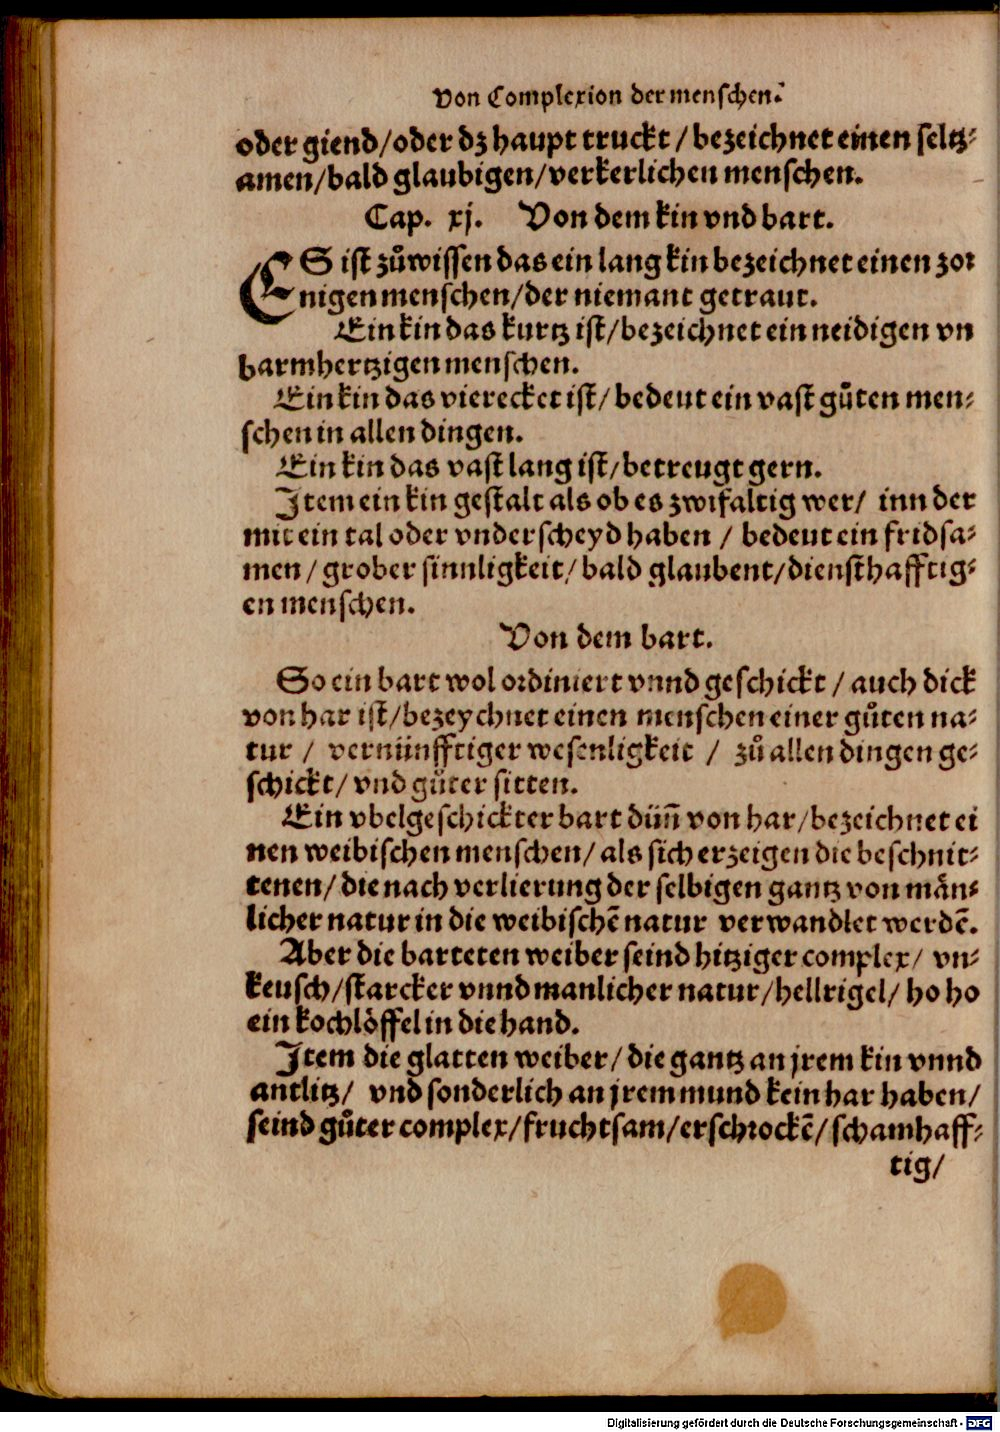 Von Complexion der menschen.
oder giend/oder dz haupt truckt / bezeichnet einen seltz⸗
amen/bald glaubigen/verkerlichen menschen.
Cap. xj. Von dem kin vnd bart.
ES ist zůwissen das ein lang kin bezeichnet einen zor
nigen menschen/der niemant getraut.
Ein kin das kurtz ist/bezeichnet ein neidigen vn
barmhertzigen menschen.
Ein kin das vierecket ist/ bedeut ein vast gůten men⸗
schen in allen dingen.
Ein kin das vast lang ist/betreugt gern.
Item ein kin gestalt als ob es zwifaltig wer/ inn der
mit ein tal oder vnderscheyd haben / bedeut ein fridsa⸗
men / grober sinnligkeit/ bald glaubent/diensthafftig⸗
en menschen.
Von dem bart.
So ein bart wol ordiniert vnnd geschickt / auch dick
von har ist/bezeychnet einen menschen einer gůten na⸗
tur / vernünfftiger wesenligkeit / zů allen dingen ge⸗
schickt/ vnd gůter sitten.
Ein vbelgeschickter bart dün̄ von har/bezeichnet ei
nen weibischen menschen/ als sich erzeigen die beschnit⸗
tenen/ die nach verlierung der selbigen gantz von män⸗
licher natur in die weibischē natur verwandlet werdē.
Aber die barteten weiber seind hitziger complex/ vn⸗
keusch/starcker vnnd manlicher natur/hellrigel/ ho ho
ein kochlöffel in die hand.
Item die glatten weiber/ die gantz an jrem kin vnnd
antlitz/ vnd sonderlich an jrem mund kein har haben/
seind gůter complex/fruchtsam/erschrockē/ schamhaff⸗
tig/
Digitalisierung gefördert durch die Deutsche Forschungsgemeinschaft - DFG